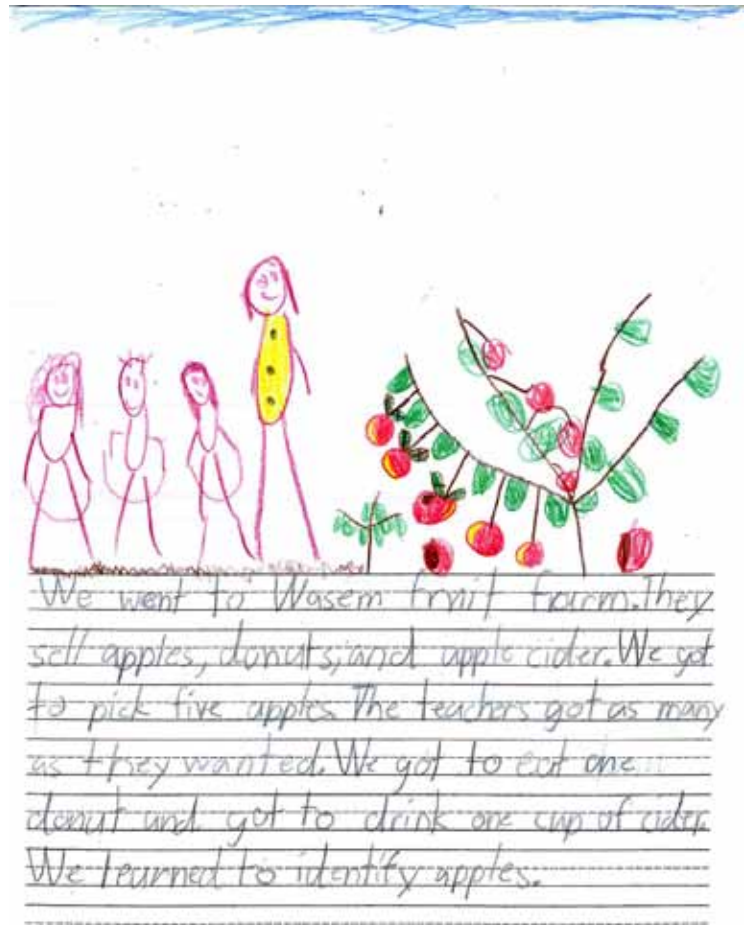 We went to Wasem fruit farm. They
sell apples, donuts, and apple cider. We got
to pick five apples. The teachers got as many
as they wanted. We got to eat one
donut and got to drink one cup of cider.
We learned to identify apples.